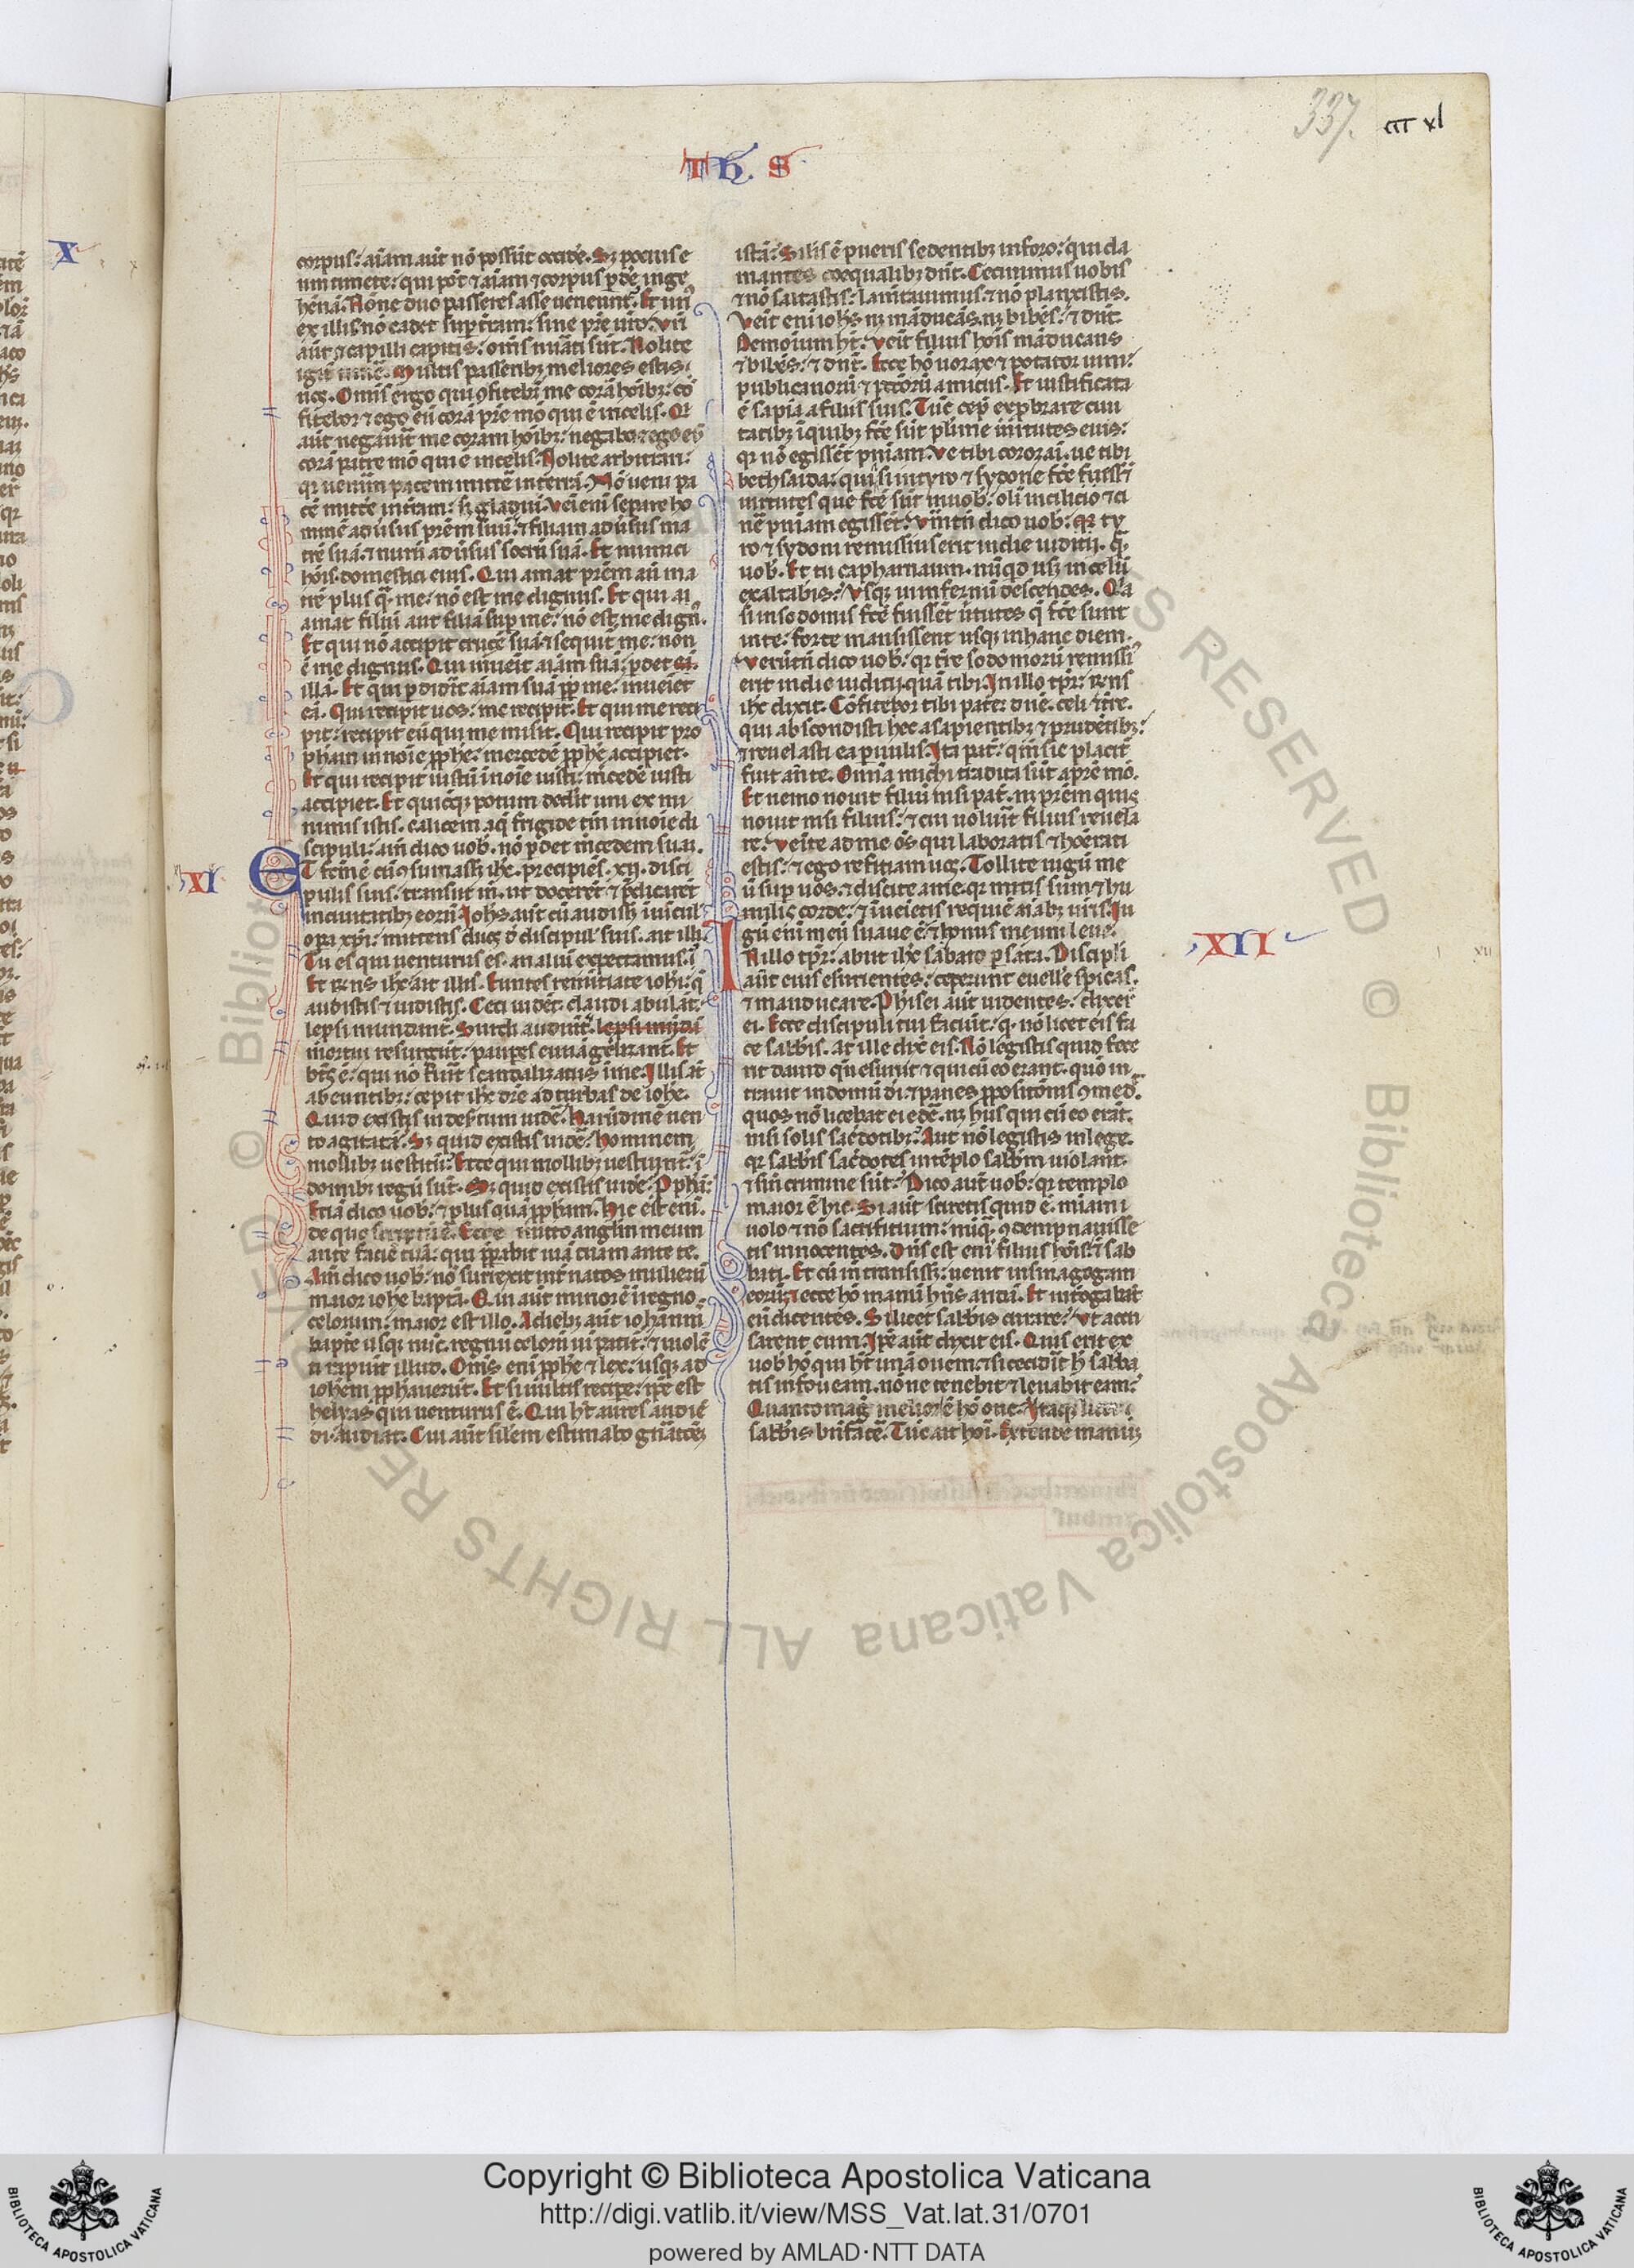 337.
Th. S
X
corpus: aīam aūt nō possūt occid'e. Sꝫ pocius e
um timete: qui pōt ⁊ aīam ⁊ corpus ꝑd'e in ge
hēnā. Nōne duo passeres asse veneunt. Et un'
ex illis nō cadet sup̄ tiram: sine pr̄e vr̄o. Vr̄i
aūt ⁊ capilli capitis: om̄s nūati sūt. Nolite
multis passeribꝫ meliores estis
uos. Om̄is ergo qui ꝯfitebr̄ me corā hōibꝫ: cō
fitebor ⁊ ego eū corā pr̄e mō qui ē in celis. Qi
aūt negāuit me coram hōibꝫ: negabo ⁊ ego eū
corā patre mō qui ē in celis. Nolite arbitrari:
qr ueneri pacem mitte in terrā. Nō veni pa
cē mitte in tiram: sꝫ gladiū. Veī eni separe ho
minē aduīsus pr̄em suū: ⁊ filiam aduīsus ma
trē suā: ⁊ nurū aduīsus socrū suā. Et inimici
hōis: domestici eius. Qui amat pr̄em aū ma
trē plus q̄ me: nō est me dignus. Et qui
amat filiū aut filiā sup me: nō est me dign'.
Et qui nō accipit crucē suā ⁊ sequit' me: non
ē me dignus. Qui inueit aīam suā: ꝑdet
illā. Et qui ꝑdidīt aīam suā ꝓp me: inueiet
eā. Qui recipit uos: me recipit. Et qui me reci
pit: recipit eū qui me misit. Qui recipit pro
phām in noīe ꝓphe: mercedē ꝓphe accipiet.
Et qui recipit iustū ī noīe iusti: m̄cedē iusti
accipiet. Et quicūqꝫ potum dedīt uni ex mi
nimis istis. calicem aq̄ frigide tm̄ in noīe di
scipuli: am̄ dico uob'. nō ꝑdet m̄cedem suā.
XI
ET fcm̄ ē cū ꝯsumassꝫ ih̄c. precipiēs .xij. disci
pulis suis: transiit īn. ut doceret ⁊ p̄dicaret
in ciuitatibꝫ eorū. Iohs aūt cū audissꝫ in uīcul'
opa xp̄i: mittens duos d' discipul' suis. ait illi.
Tu es qui venturus es. an aliū expectamus.
Et rn̄s ih̄c ait illis. Euntes renūtiate iohi: q̄
audistis ⁊ uidistis. Ceci uidēt. claudi abulāt.
lepsi mundant'. Surdi audiūt.
mortui resurgūt: pauꝑes euuāgelizant'. Et
bt̄s ē: qui nō fuīt scandalizatus ī me. Illis aūt
abeuntibꝫ: cepit ih̄c dr̄e ad turbas de iohe.
Quid existis in des'tum uide. Harūdinē ven
to agitatā. Sꝫ quid existis uide. Hominem
mollibꝫ uestitū. Ecce qui mollibꝫ uestiunt': ī
domibꝫ regū sūt. Sꝫ quid existis uide. Pphm̄.
Etiā dico uob': ⁊ plus quā ꝓpham. Hic est eni.
de quo scriptū ē. Ecce mitto anglm̄ meum
ante faciē tuā: qui p̄parabit uiā tuam ante te.
Am̄ dico uob': nō surrexit int̄ natos mulierū
maior iohe bapta. Qui aūt minor ē ī regno
celorum: maior est illo. A diebꝫ aūt iohānnī
bapte usqꝫ nūc. regnū celorū uī patit': ⁊ uiolē
ti rapiūt illud. Om̄s eni ꝓphe ⁊ lex: usqꝫ ad
iohem ꝓphauerūt. Et si uultis recipe: ip̄e est
helyas qui uenturus ē. Qui ht̄ aures audiē
di: audiat. Cui aūt silem estimabo gn̄atōeꝫ
istā: Silis ē pueris sedentibꝫ in foro: qui cla
mantes coequalibꝫ dn̄t. Cecinimus uobis
⁊ nō saltastis: lam̄tauimus: ⁊ nō planxistis.
Veīt eni iohs nꝫ māducās nꝫ bibēs: ⁊ dn̄t.
Demoium ht̄. Veīt filius hōis māducans
⁊ bibēs: ⁊ dn̄t. Ecce hō uorax ⁊ potator uini:
publicanorū ⁊ pctōrū amicus. Et iustificata
ē sapīa a filiis suis. Tūc cep̄ exprobrare ciui
tatibꝫ ī quibꝫ fc̄e sūt plurīe uīrtutes eius:
qr nō egissēt pn̄iam. Ve tibi corozaī. ue tibi
bethsaida: qui si in tyro ⁊ sydone fc̄e fuissēt
uirtutes que fc̄e sūt in uob': olī in cilicio ⁊ ci
nē pn̄iam egissēt. Vūtn̄ dico uob': qr ty
ro ⁊ sydoni remissius erit in die iudicij. q̄.
uob'. Et tu capharnaum. nūqd usqꝫ in celū
exaltabis: Usqꝫ in infernū descendes. Qīa
si in sodomis fc̄e fuissēt ūtutes q̄ fc̄e sunt
in te: forte mansissent usqꝫ in hanc diem.
Verūtn̄ dico uob': qr tr̄e sodomorū remissi'
erit in die iudicij quā tibi. In illo tp̄r: rn̄s
ih̄c dixit. Cōfitebor tibi pater dn̄e. celi ⁊ tr̄e.
qui abscondisti hec a sapientibꝫ ⁊ prudētibꝫ:
⁊ reuelasti ea paruulis. Ita pat': qm̄ sic placit'
fuit an̄ te. Omīa michi tradita sūt a pr̄e mō.
Et nemo nouit filiū nisi pat'. nꝫ pr̄em quis
nouit nisi filius: ⁊ cui uoluīt filius reuela
re. Veīte ad me om̄s qui laboratis ⁊ honerati
estis: ⁊ ego reficiam uos. Tollite iugū me
ū sup uos. ⁊ discite a me. qr mitis sum ⁊ hu
milis corde: ⁊ inuēietis requiē aīabꝫ ur̄is. Iu
gū eni meū suaue ē: ⁊ honus meum leue.
XII
IN illo tp̄r: abiit ih̄c sabato ꝑ sata. Discipli
aūt eius esurientes: ceperunt euelle spicas.
⁊ manducare. Phisei aūt uidentes: dixer̄
ei. Ecce discipuli tui faciūt: q. nō licet eis fa
ce sabbis. At ille dix̄ eis. Nō legistis quid fece
rit dauid qn̄ esuriit ⁊ qui cū eo erant. quō in
trauit in domū di: ⁊ panes ꝓpositōnis ꝯmed'.
quos nō licebat ei ede. nꝫ hiis qui cū eo erāt.
nisi solis sac'dotibꝫ: Aut nō legistis in lege.
qr sabbis sac'dotes in tēplo sabbm uiolant.
⁊ sin̄ crimine sūt. Dico aūt uob': qr templo
maior ē hic. Si aūt sciretis quid ē. mīam
uolo ⁊ nō sacrificium: nūq̄. ꝯdempnauisse
tis innocentes. Dn̄s est eni filius hōis: ⁊ sab
bati. Et cū in transissꝫ: uenit in sinagogam
eorū: ⁊ ecce hō manū hn̄s aridā. Et int̄rogabāt
eū dicentes. Si licet sabbis curare: Ut accu
sarent eum. Ip̄e aūt dixit eis. Quis erit ex
uob' hō qui ht̄ unā ouem: ⁊ si cecidīt h' sabba
tis in foueam. nōne tenebit ⁊ leuabit eam:
Quanto mag' melior ē hō oue: Itaqꝫ licet
sabbis bn̄ face. Tūc ait hōi. Extende manū
Copyright © Biblioteca Apostolica Vaticana
http://digi.vatlib.it/view/MSS_Vat.lat.31/0701
powered by AMLAD·NTT DATA
BIBLIOTECA APOSTOLICA VATICANA
BIBLIOTECA APOSTOLICA VATICANA